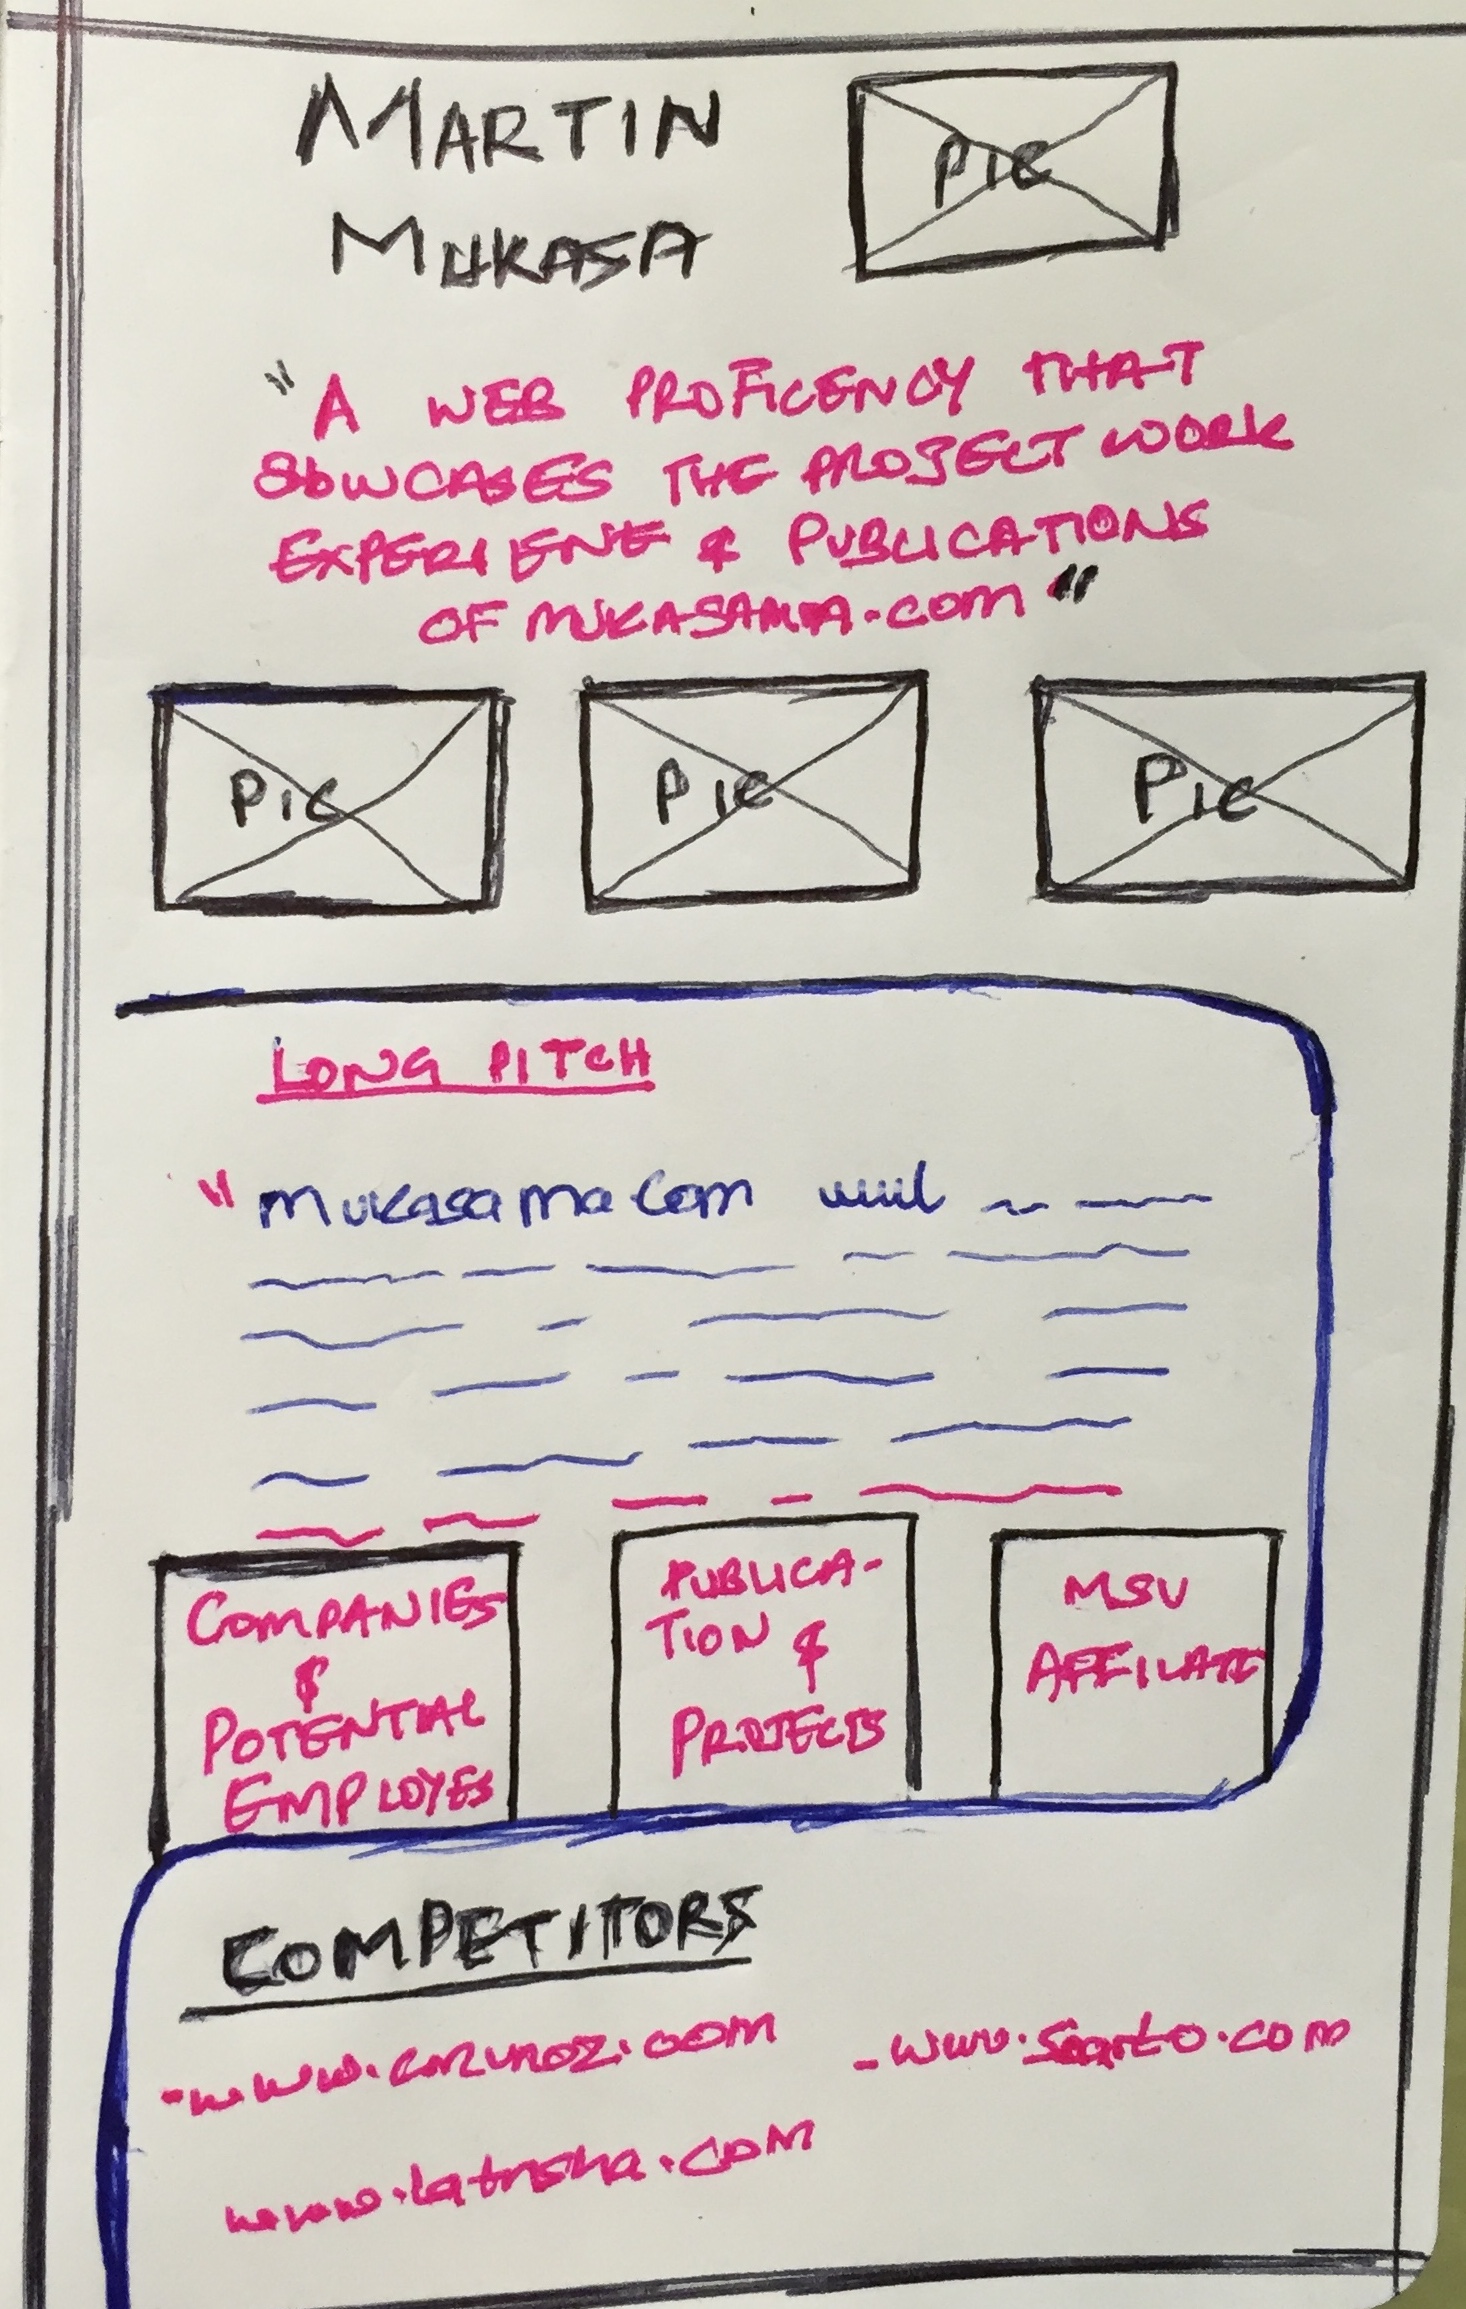 MARTIN
MUKASA
PIC
"A WEB PROFICENCY THAT
ShOWCASES THE PROJECT WORK
EXPERIENE & PUBLICATIONS
OF MUKASAMA.COM"
PIC PIC PIC
LONG PITCH
"Mukasama Com will
COMPANIES
&
POTENTIAL
EMPLOYES
PUBLICA-
TION &
PROJECTS
MSU
AFFILIATE
COMPETITORS
- www.
- www.
www.latrisha.com